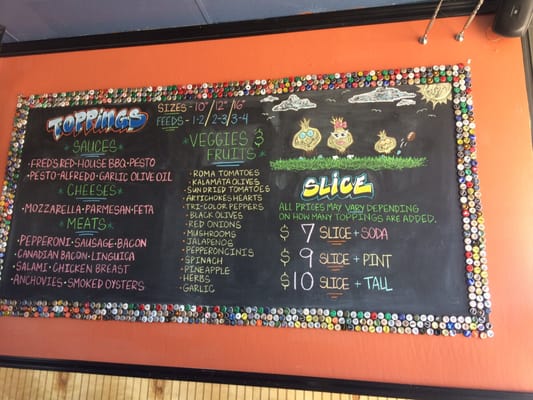 TOPPINGS
SAUCES
FRED'S RED•HOUSE BBQ•PESTO
PESTO•ALFREDO•GARLIC OLIVE OIL
CHEESES
MOZZARELLA•PARMESAN•FETA
MEATS
PEPPERONI•SAUSAGE•BACON
CANADIAN BACON•LINGUICA
SALAMI•CHICKEN BREAST
ANCHOVIES•SMOKED OYSTERS
SIZES-10"/12"/16"
FEEDS-1-2/2-3/3-4
VEGGIES &
FRUITS
ROMA TOMATOES
KALAMATA OLIVES
SUN DRIED TOMATOES
ARTICHOKE HEARTS
TRI-COLOR PEPPERS
BLACK OLIVES
RED ONIONS
MUSHROOMS
JALAPENOS
PEPPERONCINIS
SPINACH
PINEAPPLE
HERBS
GARLIC
SLICE
ALL PRICES MAY VARY DEPENDING
ON HOW MANY TOPPINGS ARE ADDED.
$7 SLICE + SODA
$9 SLICE + PINT
$10 SLICE + TALL